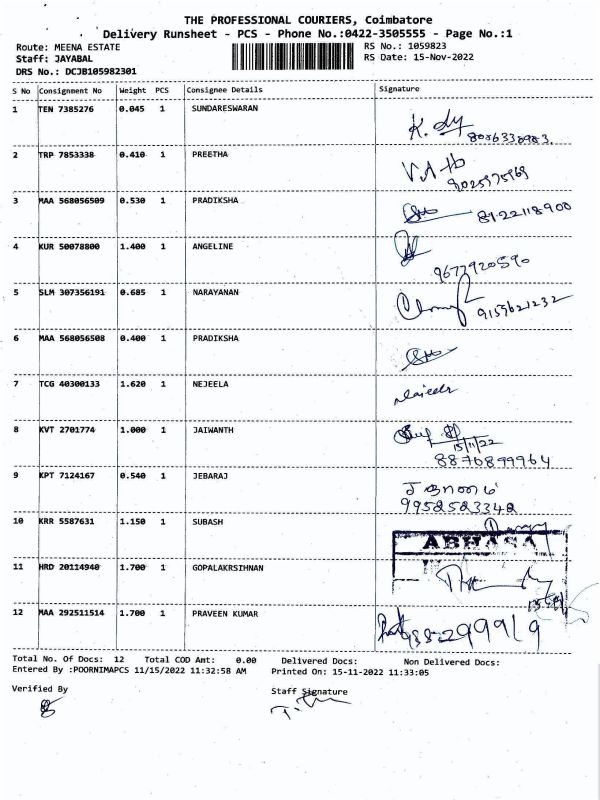 THE PROFESSIONAL COURIERS, Coimbatore
Delivery Runsheet - PCS - Phone No.:0422-3505555 - Page No.:1
Route: MEENA ESTATE RS No.: 1059823
Staff: JAYABAL RS Date: 15-Nov-2022
DRS No.: DCJB105982301
S No Consignment No Weight PCS Consignee Details Signature
1 TEN 7385276 0.045 1 SUNDARESWARAN
8056338983
2 TRP 7853338 0.410 1 PREETHA
9025975969
3 MAA 568056509 0.530 1 PRADIKSHA
4 KUR 50078800 1.400 1 ANGELINE
9677920590
5 SLM 307356191 0.685 1 NARAYANAN
9159621232
6 MAA 568056508 0.400 1 PRADIKSHA
7 TCG 40300133 1.620 1 NEJEELA
8 KVT 2701774 1.000 1 JAIWANTH
15/11/22
8870899964
9 KPT 7124167 0.540 1 JEBARAJ
9952523342
10 KRR 5587631 1.150 1 SUBASH
ABHASA
11 HRD 20114940 1.700 1 GOPALAKRSIHNAN
12 MAA 292511514 1.700 1 PRAVEEN KUMAR
Total No. Of Docs: 12 Total COD Amt: 0.00 Delivered Docs: Non Delivered Docs:
Entered By :POORNIMAPCS 11/15/2022 11:32:58 AM Printed On: 15-11-2022 11:33:05
Verified By Staff Signature